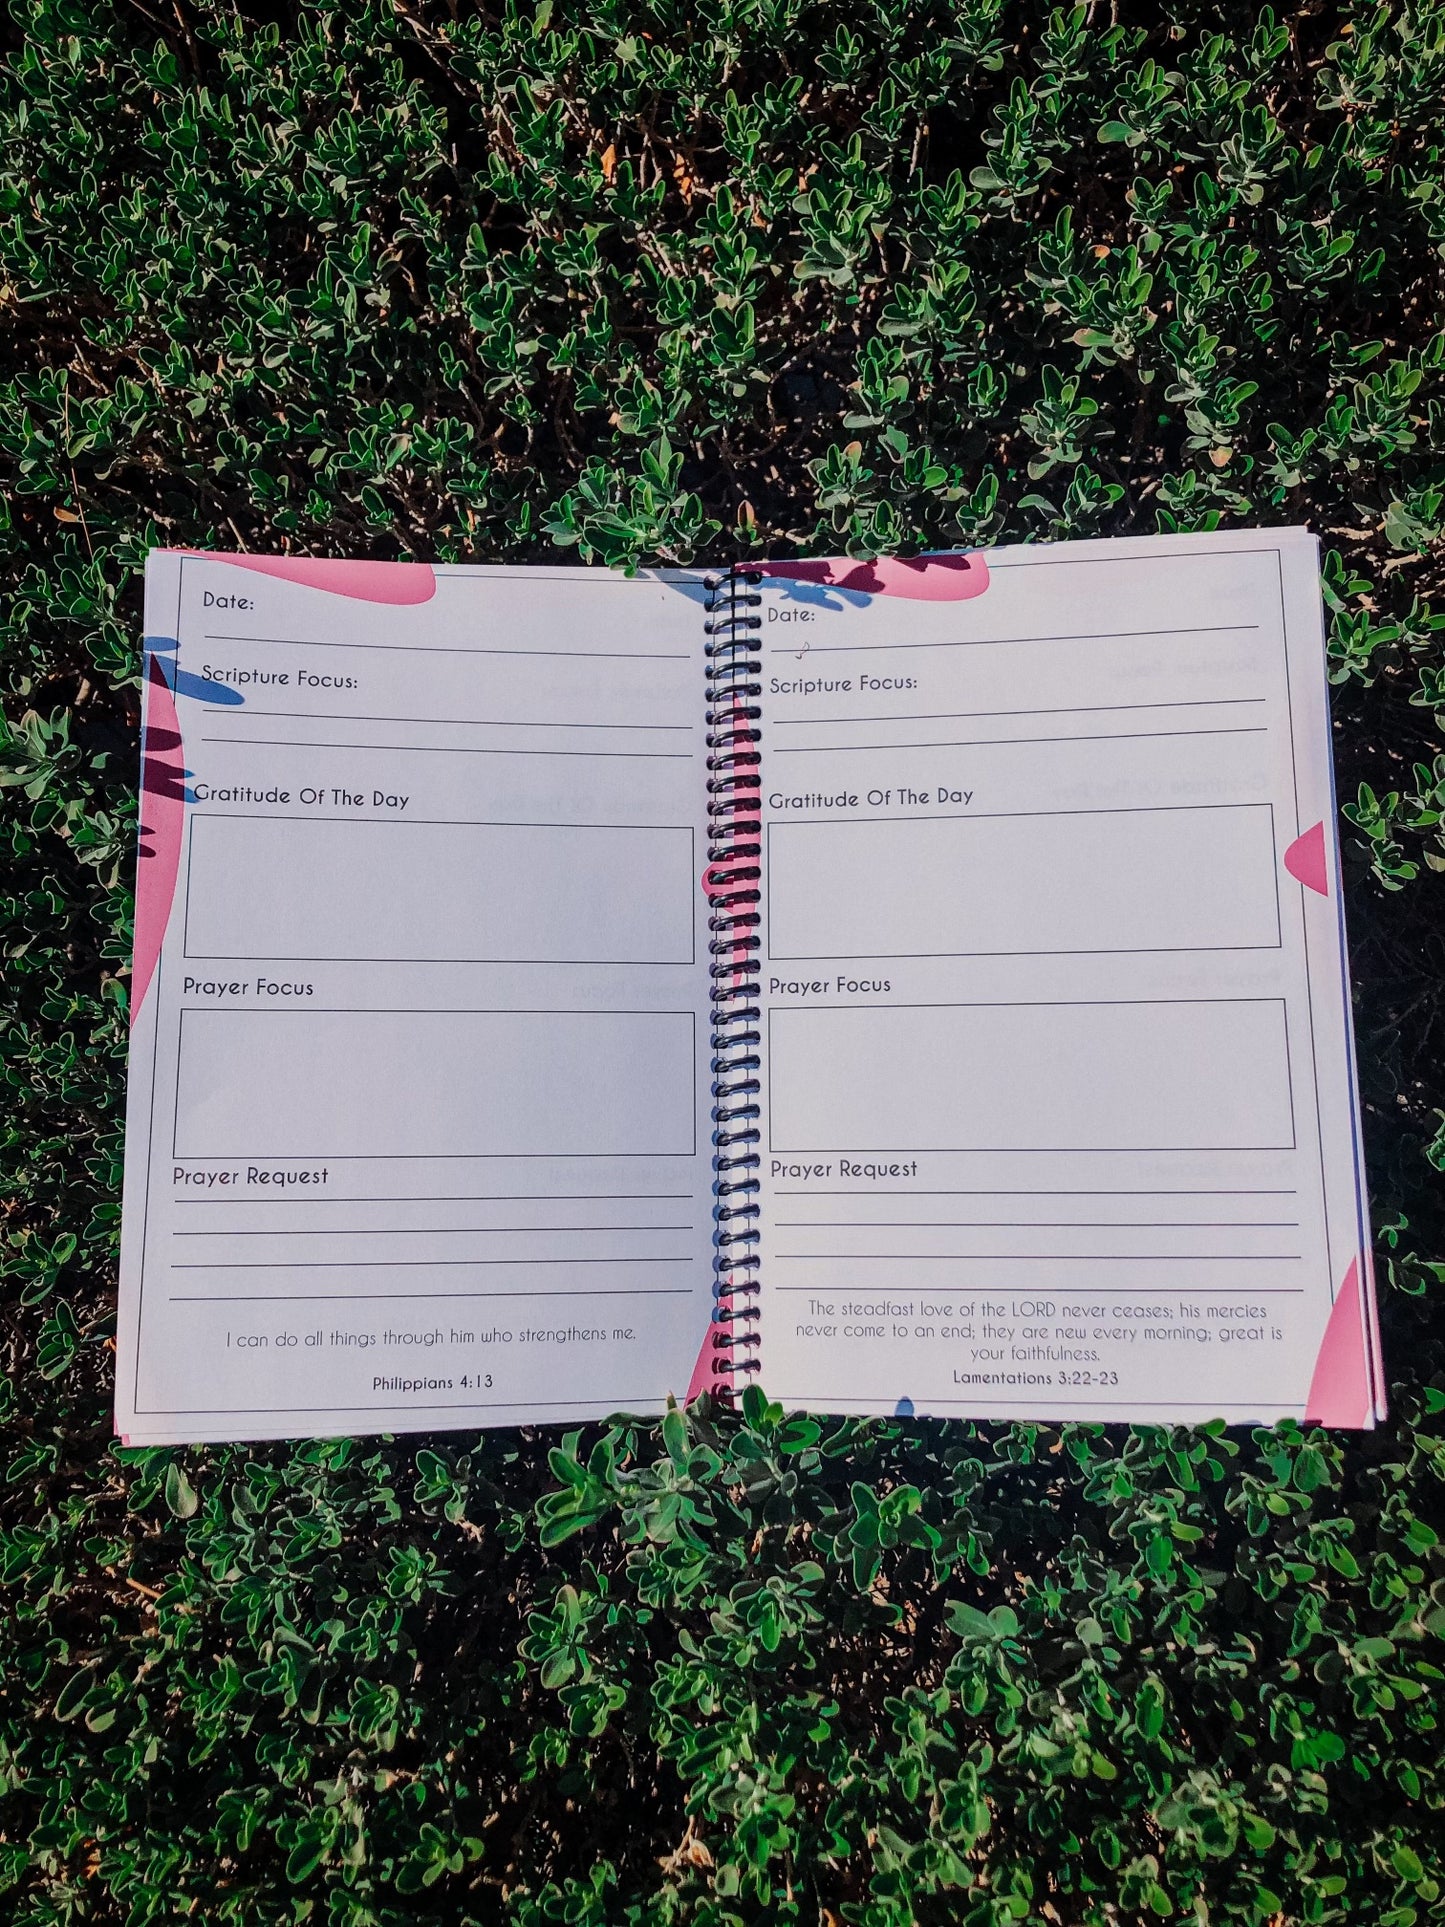 Date:
Scripture Focus:
Gratitude Of The Day
Prayer Focus
Prayer Request
I can do all things through him who strengthens me.
Philippians 4:13
Date:
Scripture Focus:
Gratitude Of The Day
Prayer Focus
Prayer Request
The steadfast love of the LORD never ceases; his mercies
never come to an end; they are new every morning; great is
your faithfulness.
Lamentations 3:22-23